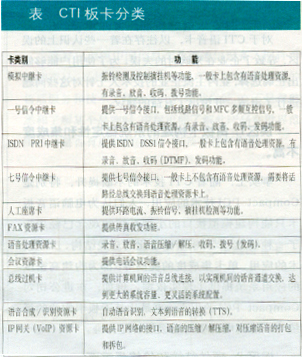 表 CTI板卡分类
卡类别 功 能
模拟中继卡 振铃检测及控制摘挂机等功能，一般卡上包含有语音处理资源，
有录音、放音、收码、拨号功能。
一号信令中继卡 提供一号信令接口，包括线路信号和MFC多频互控信号，一般
卡上包含有语音处理资源，有录音、放音、收码、发码功能。
ISDN PRI中继卡 提供ISDN DSS1信令接口，一般卡上包含有语音处理资源，有录
音、放音、收码(DTMF)、发码功能。
七号信令中继卡 提供七号信令接口，一般卡上不包含有语音处理资源，需要将话
路经总线交换到语音处理资源卡上。
人工座席卡 提供环路电流、振铃信号、摘挂机检测等功能。
FAX资源卡 提供传真收发功能。
语音处理资源卡 录音、放音、语音压缩/解压、收码、拨号(发码)。
会议资源卡 提供电话会议功能。
总线过机卡 提供计算机间的语音总线连接，以实现机间的语音通道交换，达
到更大的系统容量、更灵活的系统配置。
语音合成/识别资源卡 自动语音识别，文本到语音的转换(TTS)。
IP网关(VoIP)资源卡 提供IP网络的接口，语音的压缩/解压缩，对压缩语音的打包
和拆包。